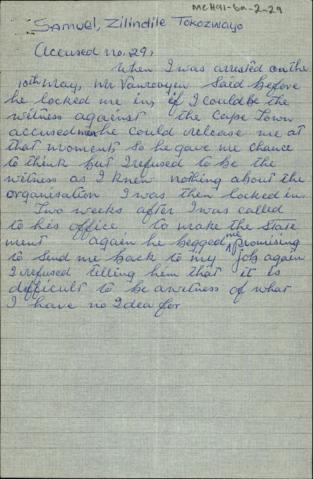 MCH91-6a-2-29
Samuel, Zilindile Tokozwayo
Accused no. 29,
When I was arrested on the
10th May, Mr Vanrooyen said before
he locked me in, if I could be the
witness against the Cape Town
accused he could release me at
that moment so he gave me chance
to think but I refused to be the
witness as I knew nothing about the
organisation I was then locked in.
Two weeks after I was called
to his office to make the state
ment again he begged me promising
to send me back to my job again
I refused telling them that it is
difficult to be a witness of what
I have no Idea for